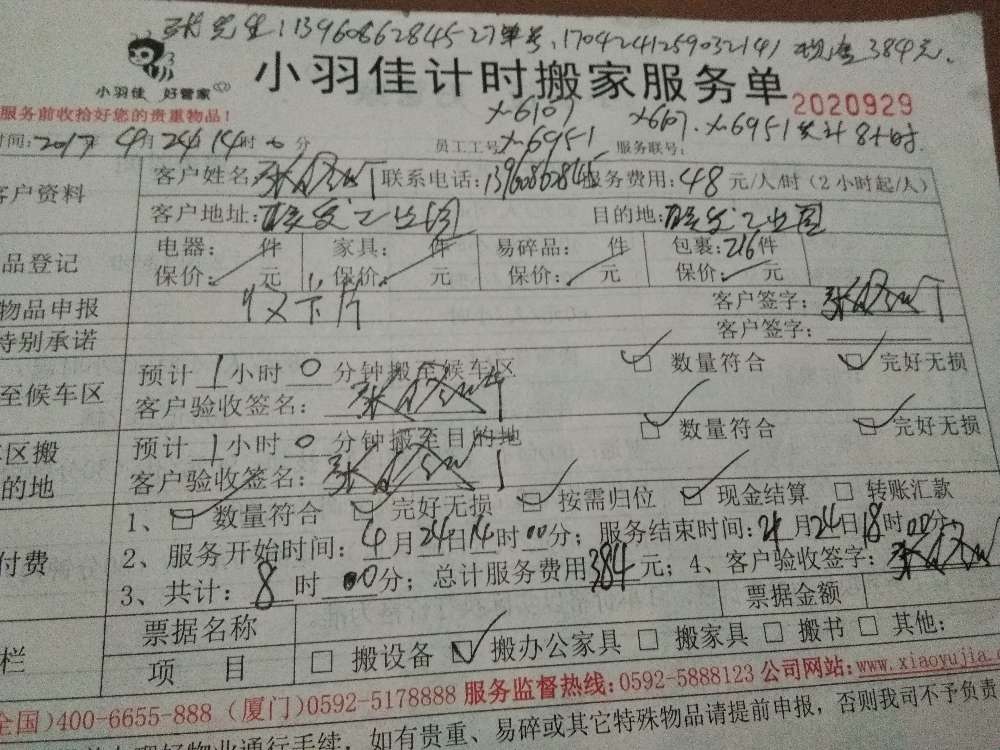 张先生:13960862845 27单号:1704241259032141 现金384元.
小羽佳 好管家
小羽佳计时搬家服务单
2020929
服务前收拾好您的贵重物品!
X-6107
X-6107. X-6951共计8小时.
时间:2017年4月24日14时0分 员工工号: X-6951 服务联号:
客户资料
客户姓名: 联系电话:13960862845 服务费用:48元/人/时(2小时起/人)
客户地址: 工业园 目的地: 工业园
品登记
电器: 件 家具: 件 易碎品: 件 包裹:216件
保价: 元 保价: 元 保价: 元 保价: 元
物品申报 仅下片 客户签字:
特别承诺 客户签字:
至候车区
预计1小时0分钟搬至候车区 数量符合 完好无损
客户验收签名:
区搬
的地
预计1小时0分钟搬至目的地 数量符合 完好无损
客户验收签名:
付费
1、 数量符合 完好无损 按需归位 现金结算 转账汇款
2、服务开始时间:4月24日14时00分;服务结束时间:4月24日18时00分,
3、共计:8时00分;总计服务费用384元;4、客户验收签字:
栏
票据名称 票据金额
项 目 搬设备 搬办公家具 搬家具 搬书 其他:
全国)400-6655-888 (厦门)0592-5178888 服务监督热线:0592-5888123 公司网站:www.xiaoyujia.c
办理好物业通行手续,如有贵重、易碎或其它特殊物品请提前申报,否则我司不予负责